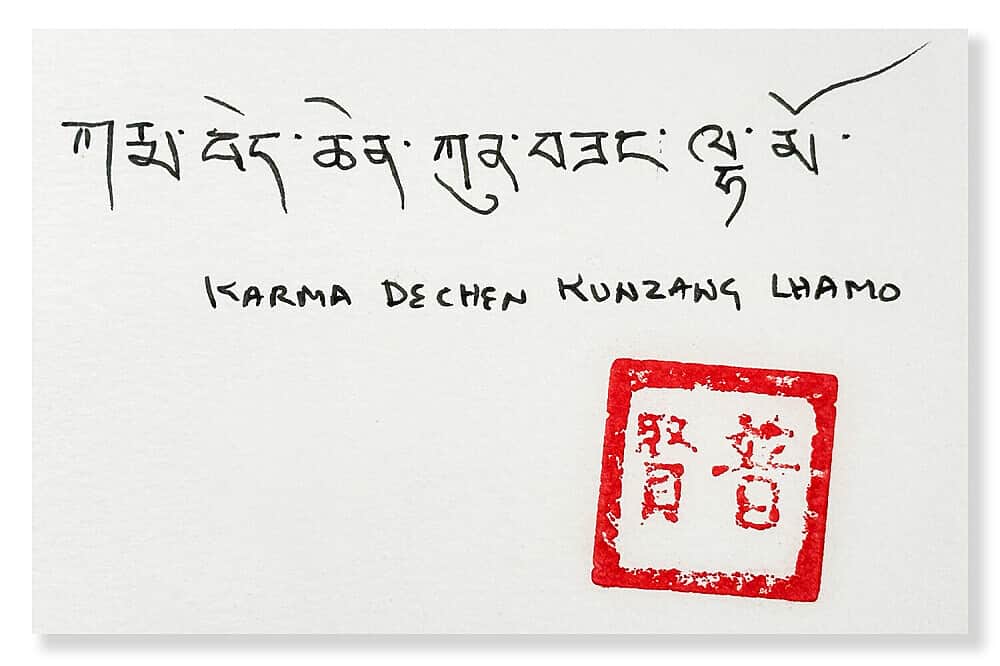 ཀརྨ་བདེ་ཆེན་ཀུན་བཟང་ལྷ་མོ་
KARMA DECHEN KUNZANG LHAMO
普賢